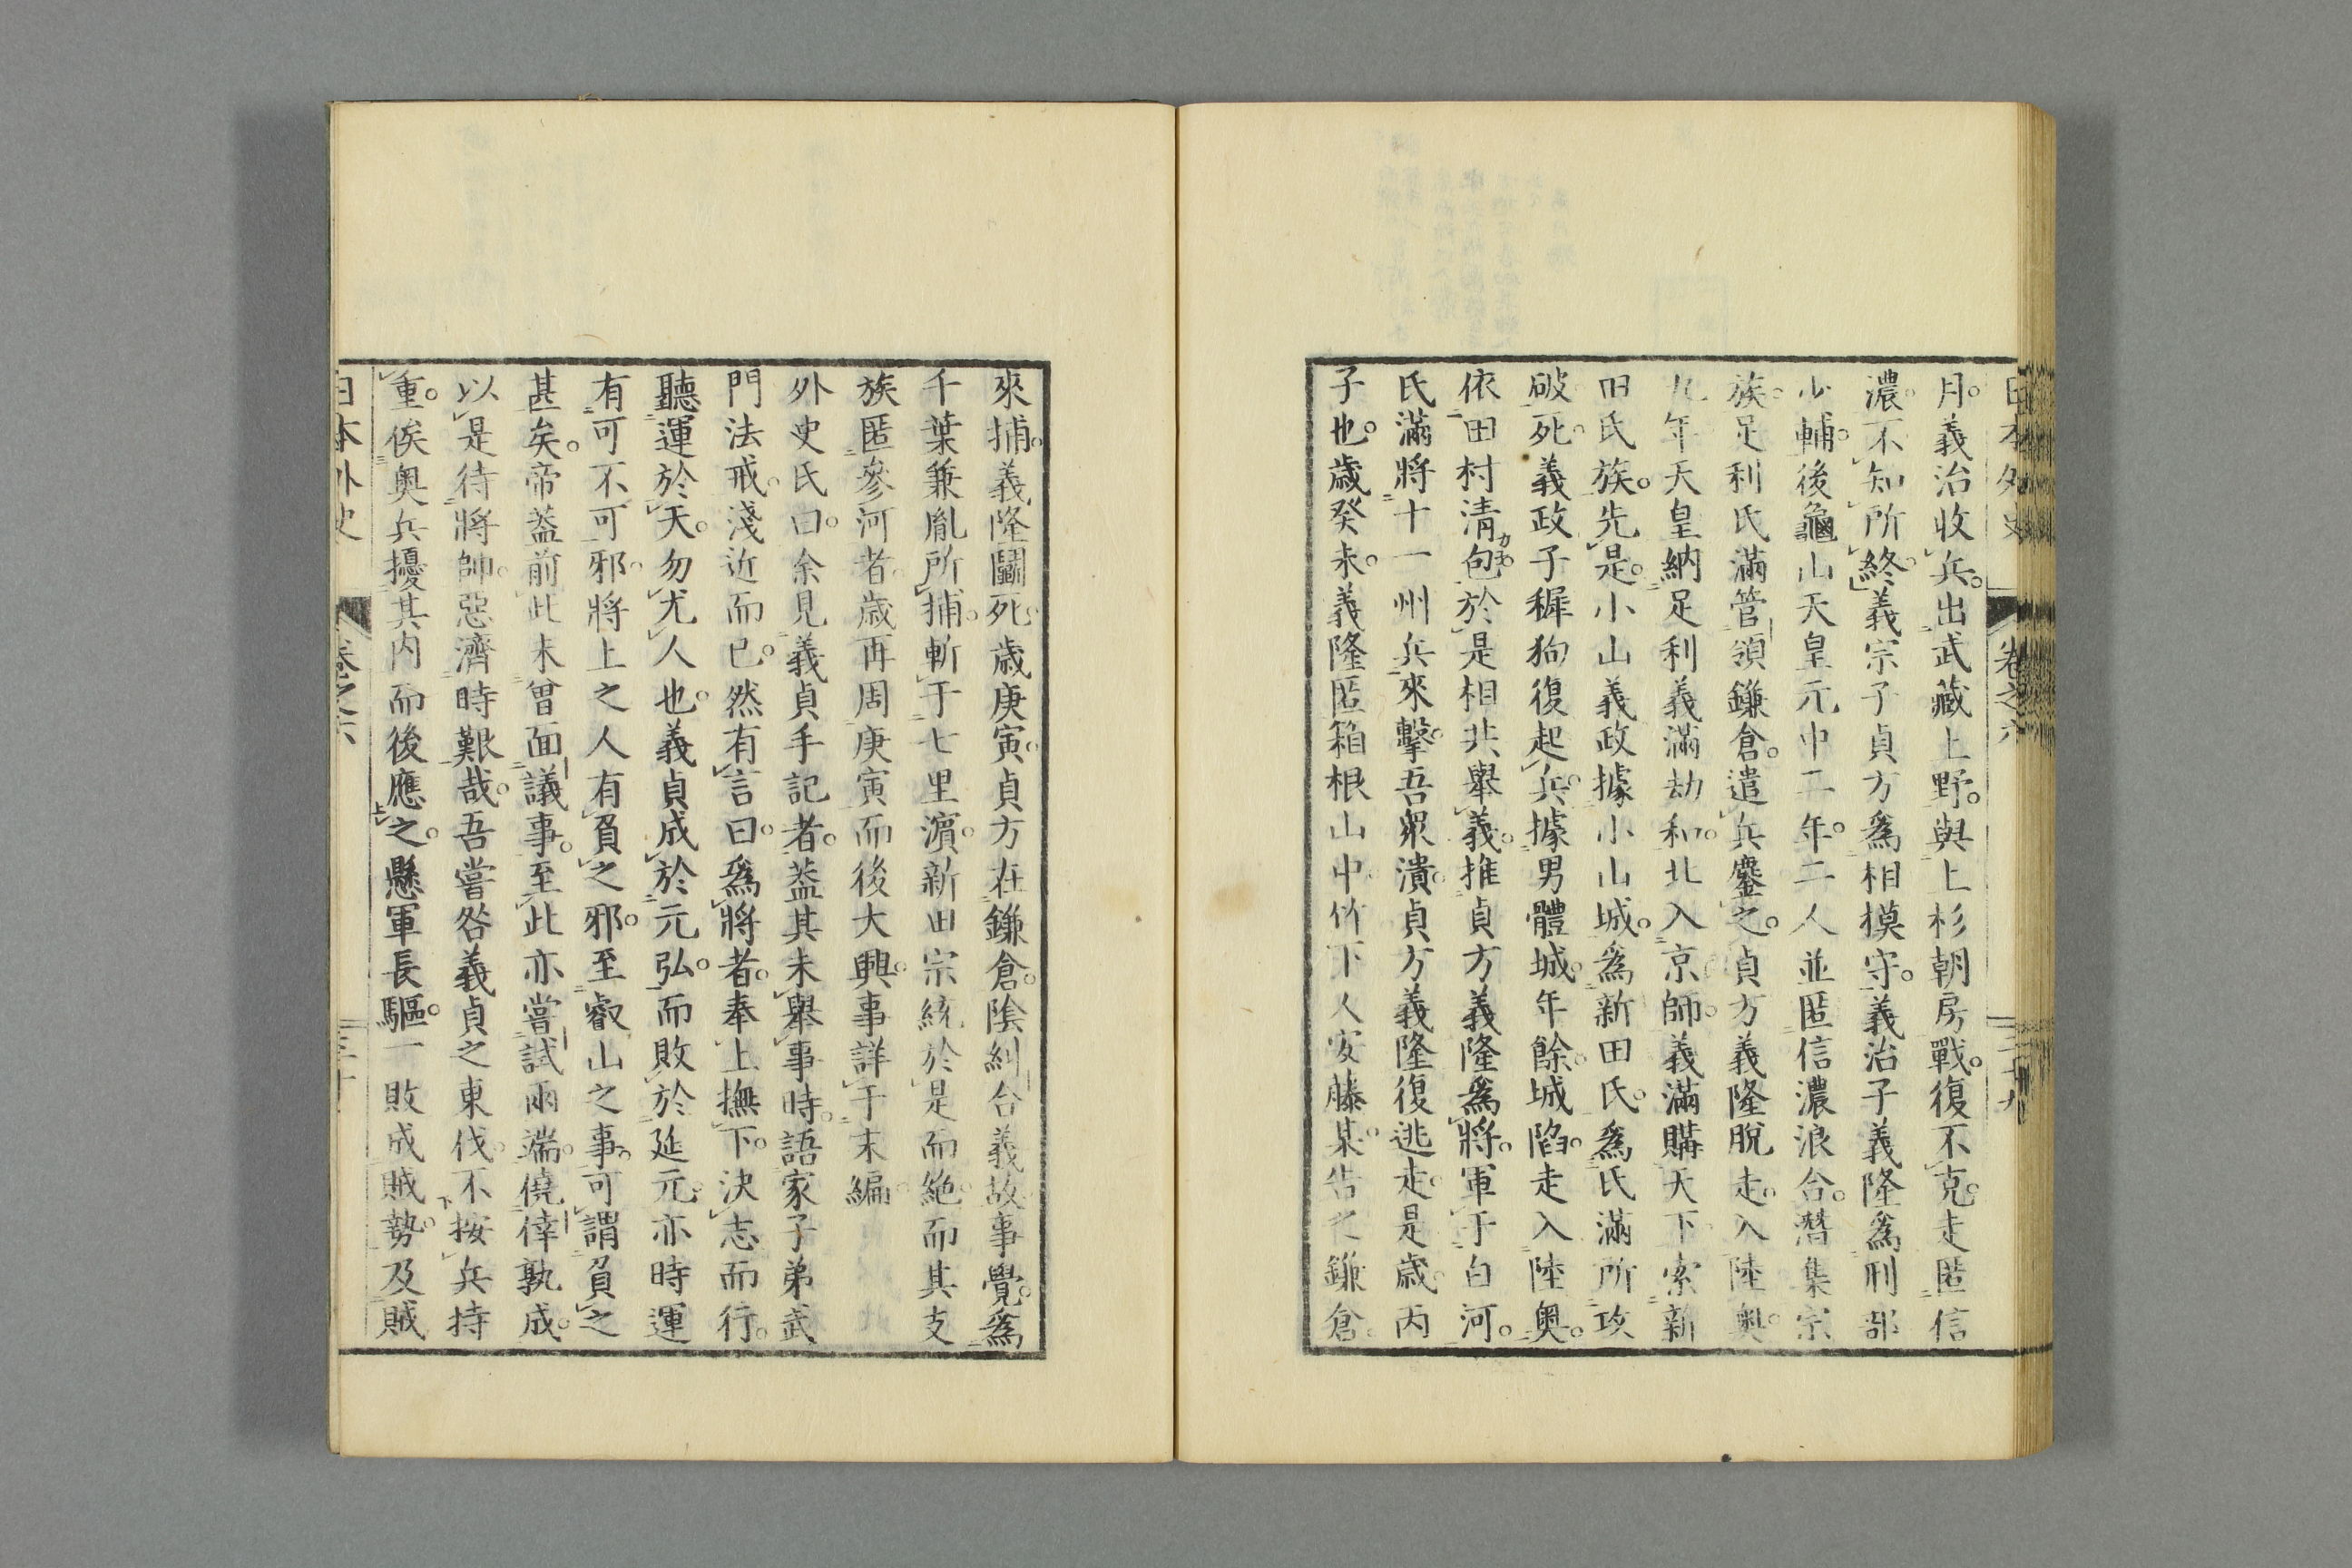 日本外史 卷之六
月。義治收兵。出武藏上野。與上杉朝房戰。復不克。走匿信
濃。不知所終。義宗子貞方爲相摸守。義治子義隆爲刑部
少輔。後龜山天皇元中二年。二人並匿信濃浪合。潛集宗
族。足利氏滿管領鎌倉。遣兵鏖之。貞方義隆脫走。入陸奧。
九年天皇納足利義滿劫和。北入京師。義滿購天下索新
田氏族。先是。小山義政據小山城。爲新田氏。爲氏滿所攻
破死。義政子穉狗復起兵。據男體城。年餘。城陷。走入陸奧。
依田村清包。於是相共舉義。推貞方義隆爲將。軍于白河。
氏滿將十一州兵來擊。吾衆潰。貞方義隆復逃走。是歲丙
子也。歲癸未。義隆匿箱根山中。竹下人安藤某。告之鎌倉。
來捕。義隆鬭死。歲庚寅。貞方在鎌倉。陰糾合義故。事覺。爲
千葉兼胤所捕。斬于七里濵。新田宗統於是而絶。而其支
族匿參河者。歲再周庚寅而後大興。事詳于末編。
外史氏曰。余見義貞手記者。葢其未舉事時。語家子弟武
門法戒。淺近而已。然有言曰。爲將者。奉上撫下。決志而行。
聽運於天。勿尤人也。義貞成於元弘。而敗於延元。亦時運
有可不可邪。將上之人有負之邪。至叡山之事。可謂負之
甚矣。帝葢前此未曾面議事。至此亦嘗試兩端。僥倖孰成。
以是待將帥。惡濟時艱哉。吾嘗咎義貞之東伐。不按兵持
重。俟奧兵擾其内。而後應之。懸軍長驅。一敗成賊勢。及賊
日本外史 卷之六